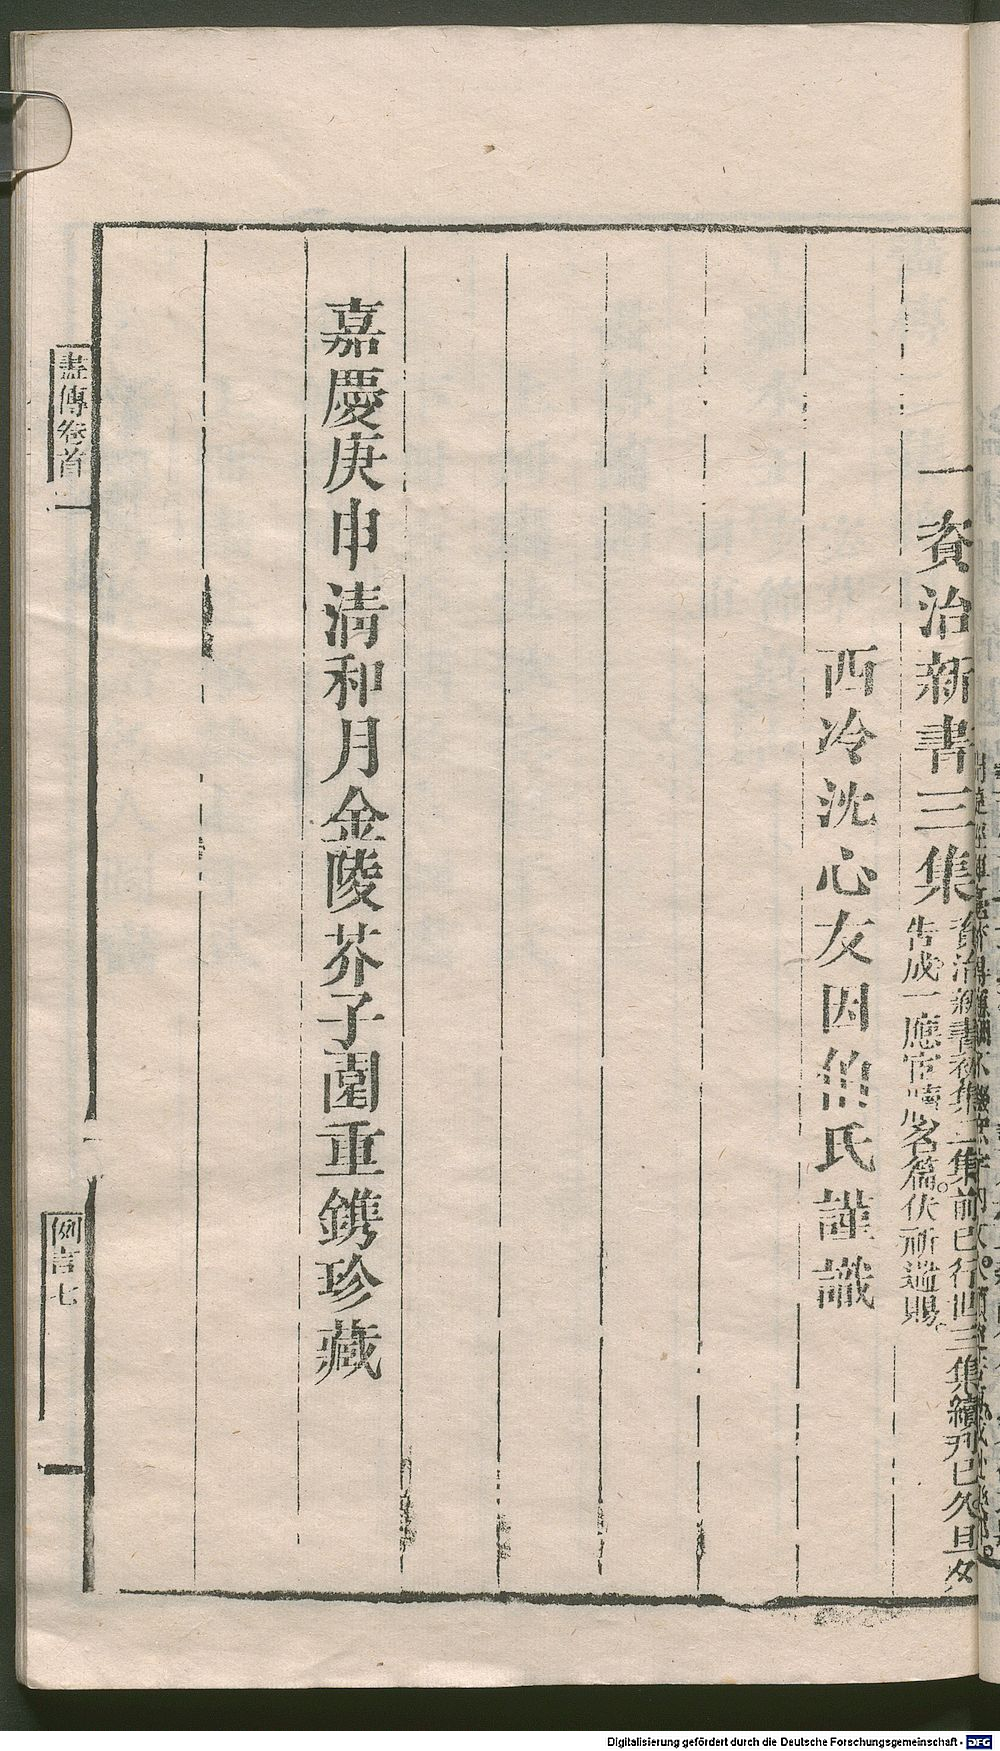 一資治新書三集
資治新書初集二集前已行世三集續刋已久旦夕
告成一應官牘名篇伏祈遄賜
西冷沈心友因伯氏謹識
嘉慶庚申清和月金陵芥子園重鐫珍藏
畫傳卷首
例言七
Digitalisierung gefördert durch die Deutsche Forschungsgemeinschaft - DFG